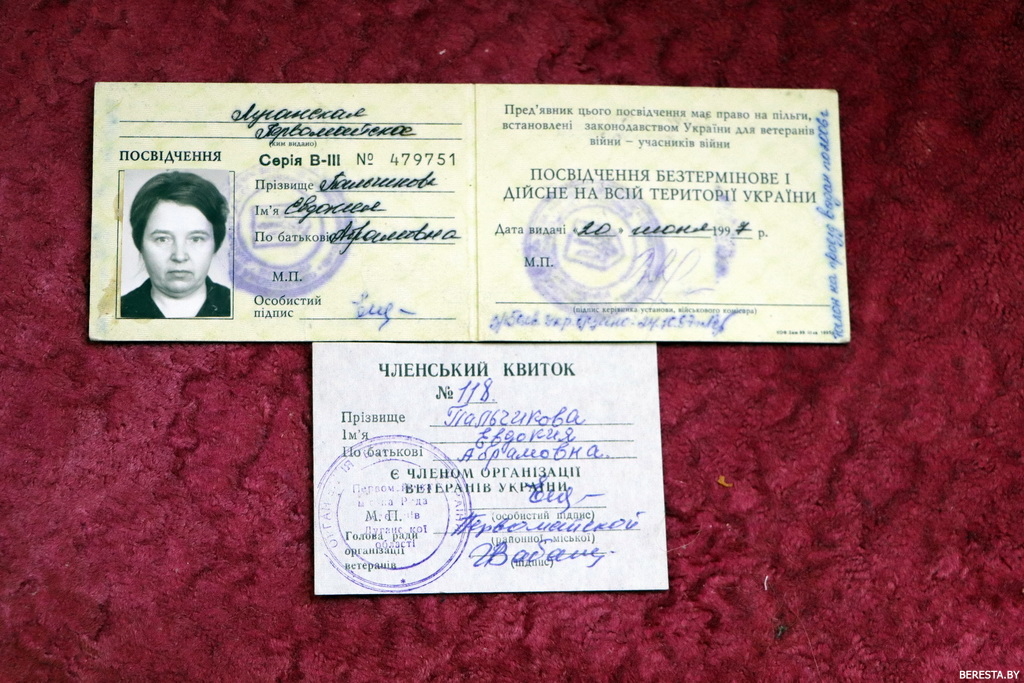 Луганская
Первомайское
(ким видано)
ПОСВІДЧЕННЯ
Серія В-III № 479751
Прізвище Пальчикова
Ім'я Евдокия
По батькові Абрамовна
М.П.
Особистий
підпис
Пред'явник цього посвідчення має право на пільги,
встановлені законодавством України для ветеранів
війни – учасників війни
ПОСВІДЧЕННЯ БЕЗТЕРМІНОВЕ І
ДІЙСНЕ НА ВСІЙ ТЕРИТОРІЇ УКРАЇНИ
Дата видачі «20» июня 1997 р.
М.П.
(підпис керівника установи, військового комісара)
талон на проезд выдан
ЧЛЕНСЬКИЙ КВИТОК
№ 118.
Прізвище Пальчикова
Ім'я Евдокия
По батькові Абрамовна.
Є ЧЛЕНОМ ОРГАНІЗАЦІЇ
ВЕТЕРАНІВ УКРАЇНИ
(особистий підпис)
М.П. Первомайской
(районної міської)
Голова ради
організації
ветеранів (підпис)
Рада
Луганської
області
BERESTA.BY